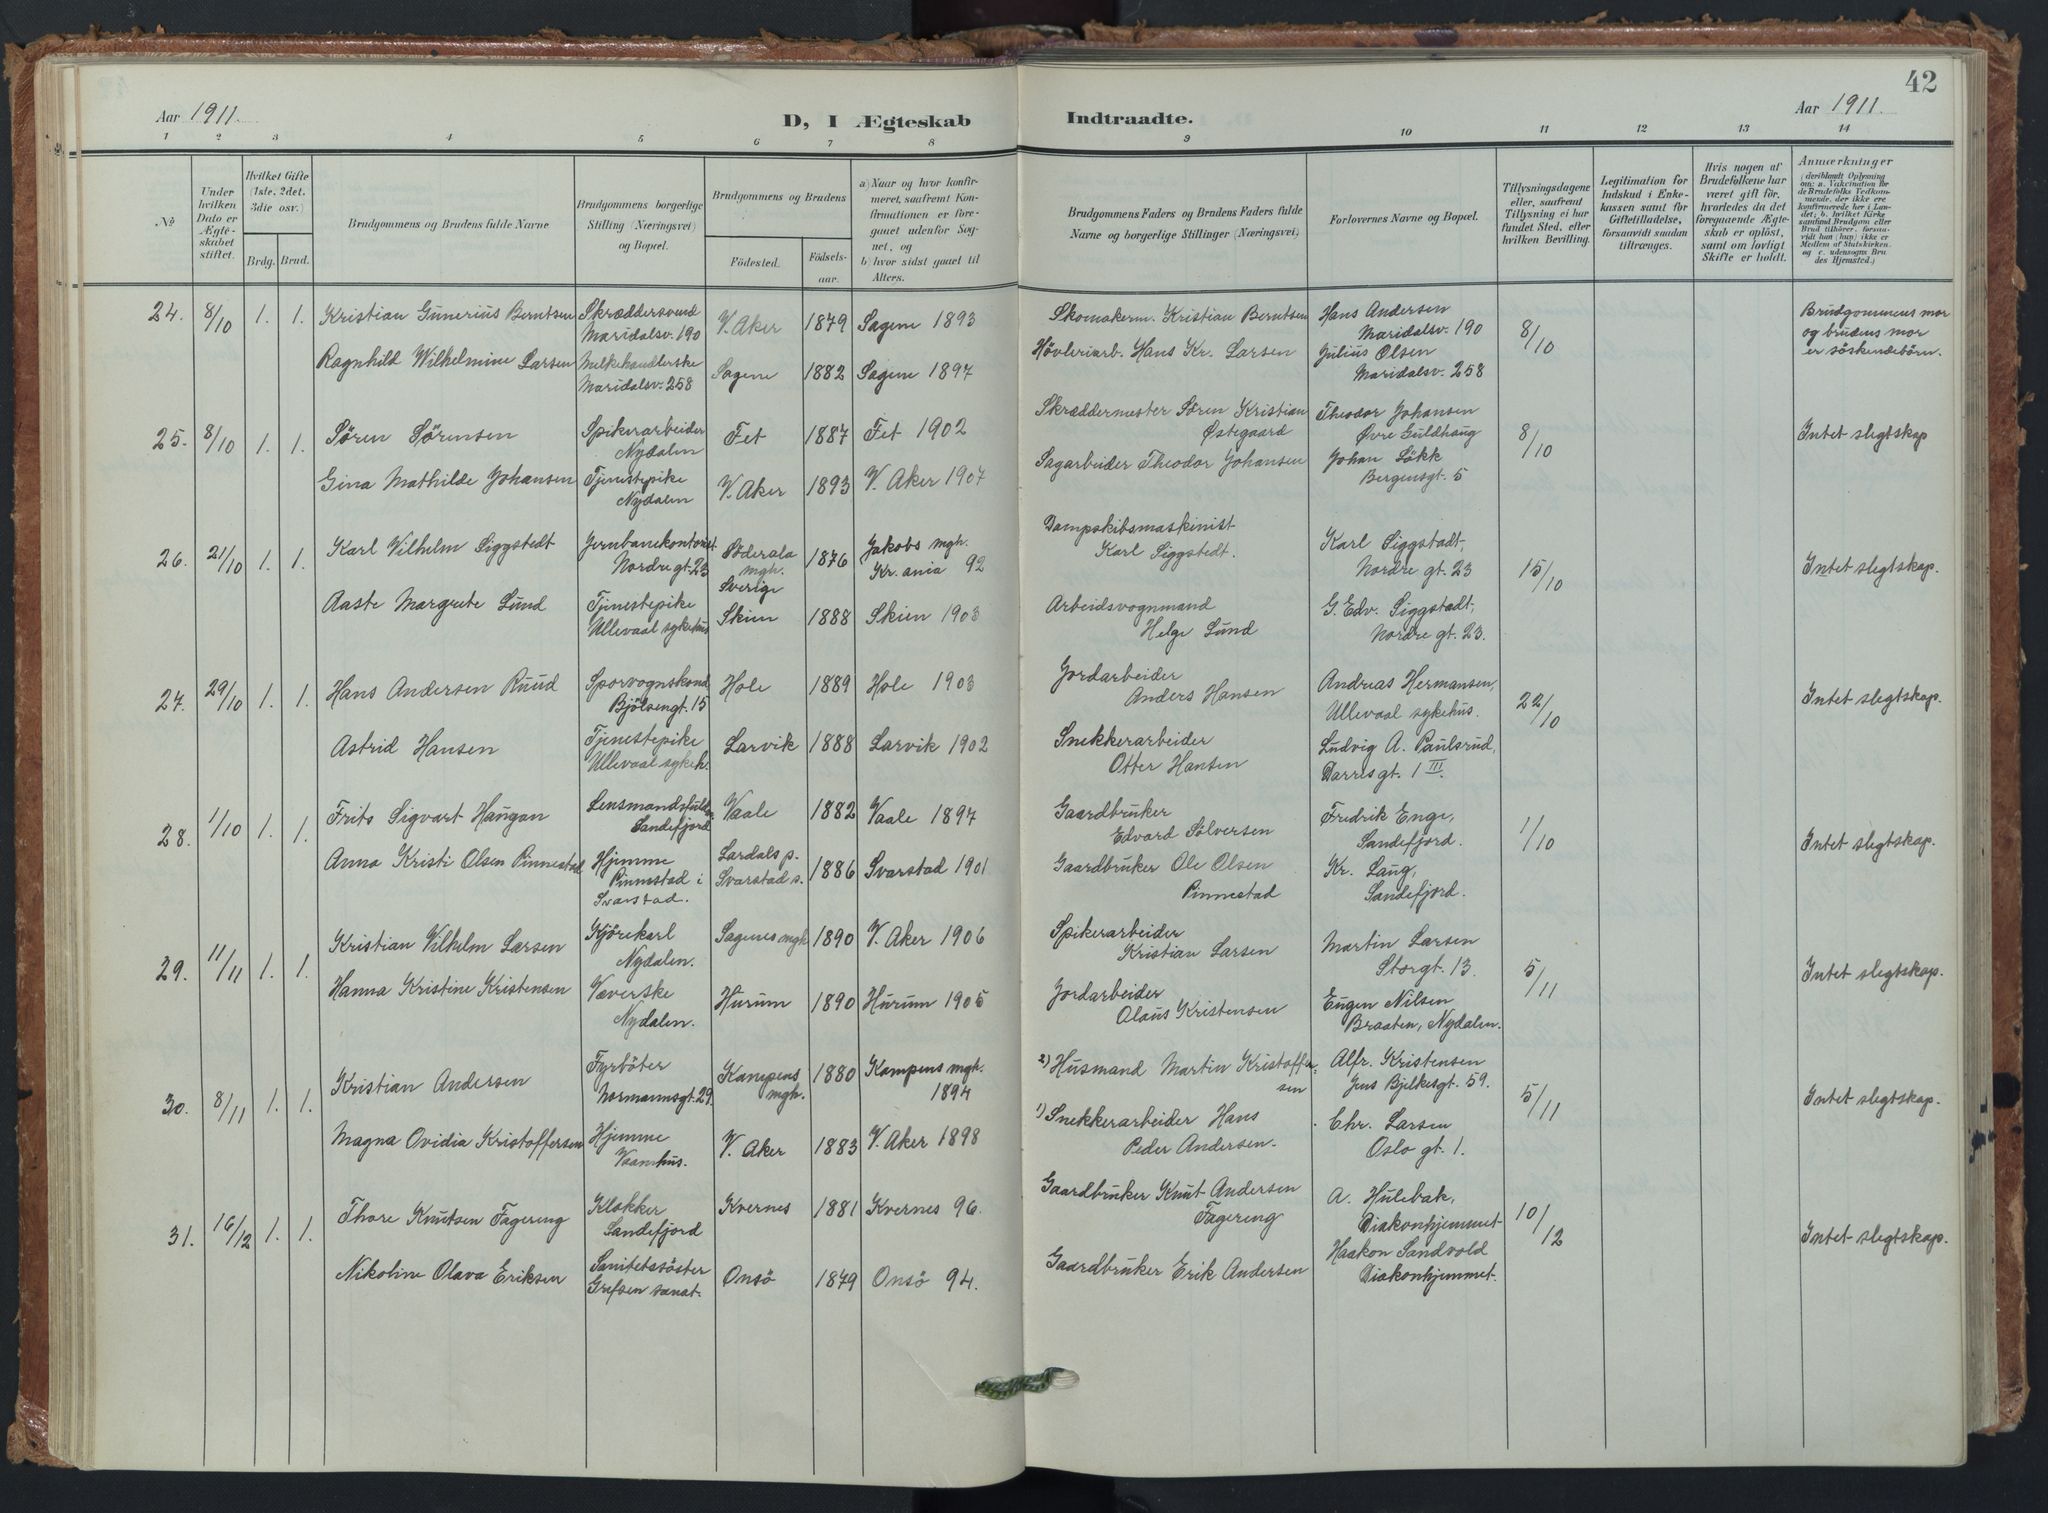 42
Aar 1911.
D, I Ægteskab Indtraadte.
Aar 1911.
1 2 3 4 5 6 7 8 9 10 11 12 13 14
№
Under hvilken Dato er Ægteskabet stiftet.
Hvilket Gifte (1ste, 2det, 3die osv.)
Brdg. Brud.
Brudgommens og Brudens fulde Navne
Brudgommens borgerlige Stilling (Næringsvei) og Bopæl.
Brudgommens og Brudens
Fødested. Fødselsaar.
a) Naar og hvor konfirmeret, saafremt Konfirmationen er foregaaet udenfor Sognet, og
b) hvor sidst gaaet til Alters.
Brudgommens Faders og Brudens Faders fulde Navne og borgerlige Stillinger (Næringsvei).
Forlovernes Navne og Bopæl.
Tillysningsdagene eller, saafremt Tillysning ei har fundet Sted, efter hvilken Bevilling.
Legitimation for Indskud i Enkekassen samt for Giftetilladelse, forsaavidt saadan tiltrænges.
Hvis nogen af Brudefolkene har været gift før, hvorledes da det foregaaende Ægteskab er opløst, samt om lovligt Skifte er holdt.
Anmærkninger
(deriblandt Oplysning om: a. Vakcination for de Brudefolks Vedkommende, der ikke ere konfirmerede her i Landet; b. hvilket Kirkesamfund Brudgom eller Brud tilhører, forsaavidt han (hun) ikke er Medlem af Statskirken, og c. udensogns Brudes Hjemsted.)
24. 8/10 1. 1. Kristian Gunerius Berntsen Skræddersvend Maridalsv. 190 V. Aker 1879 Sagene 1893 Skomakerm. Kristian Berntsen Hans Andersen Maridalsv. 190 8/10 Brudgommens mor og brudens mor er söskendebörn.
Ragnhild Wilhelmine Larsen Melkehandlerske Maridalsv. 258 Sagene 1882 Sagene 1897 Hövleriarb. Hans Kr. Larsen Julius Olsen Maridalsv. 258
25. 8/10 1. 1. Sören Sörensen Spikerarbeider Nydalen Fet 1887 Fet 1902 Skræddermester Sören Kristian Østegaard Theodor Johansen Övre Guldhaug 8/10 Intet slegtskap
Gina Mathilde Johansen Tjenestepike Nydalen V. Aker 1893 V. Aker 1907 Sagarbeider Theodor Johansen Johan Sökk Bergensgt. 5
26. 21/10 1. 1. Karl Vilhelm Siggstedt Jernbanekontorist Nordre gt. 23 Söderala mgh. Sverige 1876 Jakobs mgh. Kr.ania 92 Dampskibsmaskinist Karl Siggstedt. Karl Siggstadt, Nordre gt. 23 15/10 Intet slegtskap.
Aaste Margrete Lund Tjenestepike Ullevaal sykehus Skien 1888 Skien 1903 Arbeidsvognmand Helge Lund G. Edv. Siggstadt, Nordre gt. 23.
27. 29/10 1. 1. Hans Andersen Ruud Sporvognskond. Bjölsengt. 15 Hole 1889 Hole 1903 Jordarbeider Anders Hansen Andreas Hermansen, Ullevaal sykehus. 22/10 Intet slegtskap.
Astrid Hansen Tjenestepike Ullevaal sykeh. Larvik 1888 Larvik 1902 Snekkerarbeider Otter Hansen Ludvig A. Paulsrud, Darresgt. 1 III.
28. 1/10 1. 1. Frits Sigvart Haugan Lensmandsfuldm. Sandefjord Vaale 1882 Vaale 1897 Gaardbruker Edvard Sölversen Fredrik Enge, Sandefjord. 1/10 Intet slegtskap.
Anna Kristi Olsen Pinnestad Hjemme Pinnestad i Svarstad. Lardals p. Svarstad s. 1886 Svarstad 1901 Gaardbruker Ole Olsen Pinnestad Kr. Laug, Sandefjord.
29. 11/11 1. 1. Kristian Vilhelm Larsen Kjörekarl Nydalen. Sagenes mgh 1890 V. Aker 1906 Spikerarbeider Kristian Larsen Martin Larsen Storgt. 13. 5/11 Intet slegtskap.
Hanna Kristine Kristensen Væverske Nydalen. Hurum 1890 Hurum 1905 Jordarbeider Olaus Kristensen Eugen Nilsen Braaten, Nydalen.
30. 8/11 1. 1. Kristian Andersen Fyrböter Normannsgt. 29. Kampens mgh. 1880 Kampens mgh. 1894 2) Husmand Martin Kristoffersen Alfr. Kristensen Jens Bjelkesgt. 59. 5/11 Intet slegtskap.
Magna Ovidia Kristoffersen Hjemme Vaanhus. V. Aker 1883 V. Aker 1898 1) Snekkerarbeider Hans Peder Andersen. Chr. Larsen Oslo gt. 1.
31. 16/12 1. 1. Thore Knutsen Fagereng Klokker Sandefjord Kvernes 1881 Kvernes 96. Gaardbruker Knut Andersen Fagereng A. Hulebak, Diakonhjemmet 10/12 Intet slegtskap.
Nikoline Olava Eriksen Sanitetssöster Grefsen sanat. Onsö 1879 Onsö 94. Gaardbruker Erik Andersen Haakon Sandvold Diakonhjemmet.